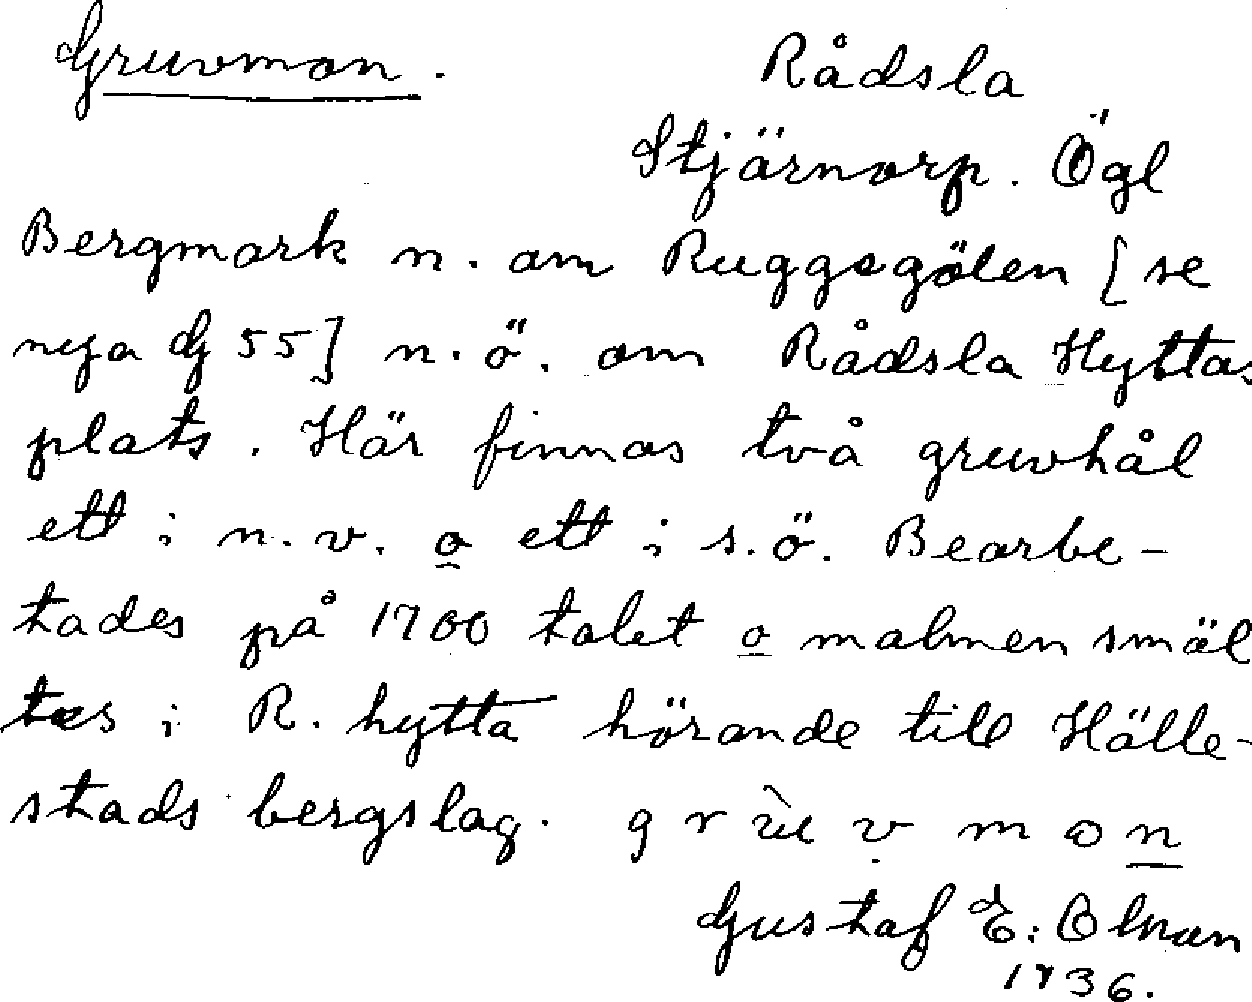 Gruvmon. Rådsla
Stjärnorp. Ögl
Bergmark n. om Ruggegölen [se
nya G 55] n.ö. om Rådsla Hyttas
plats. Här finnas två gruvhål
ett i n.v. o ett i s.ö. Bearbe-
tades på 1700 talet o malmen smäl
tes i R. hytta hörande till Hälle-
stads bergslag. g r ù v m o n
Gustaf E:
1936.